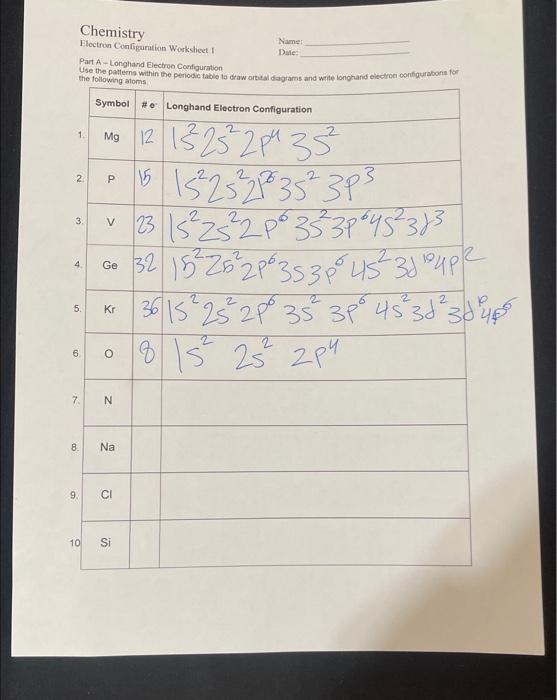 Chemistry
Name:
Electron Configuration Worksheet 1
Date:
Part A – Longhand Electron Configuration
Use the patterns within the periodic table to draw orbital diagrams and write longhand electron configurations for
the following atoms.
Symbol # e⁻ Longhand Electron Configuration
1. Mg 12 1s²2s²2p⁴3s²
2. P 15 1s²2s²2p⁶3s²3p³
3. V 23 1s²2s²2p⁶3s²3p⁶4s²3d³
4. Ge 32 1s²2s²2p⁶3s3p⁶4s²3d¹⁰4p²
5. Kr 36 1s²2s²2p⁶3s²3p⁶4s²3d²3d¹⁰4p⁶
6. O 8 1s² 2s² 2p⁴
7. N
8. Na
9. Cl
10 Si